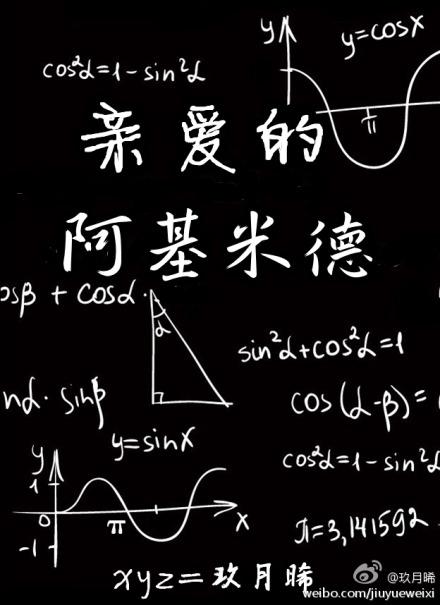 y
y=cosx
cos²α=1-sin²α
π
亲爱的
阿基米德
osβ + cosα·
α
sin²α+cos²α=1
nα·sinβ
cos(α-β)=
y=sinx
y
1
cos²α=1-sin²α
0
π
x
-1
π=3,141592
xyz=玖月晞
@玖月晞
weibo.com/jiuyueweixi